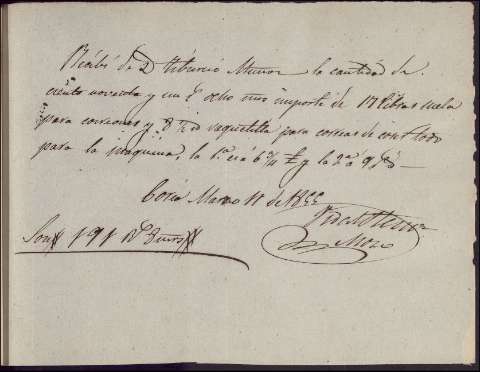 Recibí de D Tiburcio Munoz la cantidad de
ciento noventa y un r.s ocho mrs importe de 17 libras suela
para correones y 8 id vaquetilla para correas de con todo
para la maquina, la 1.a a 6 y la 2.a a 9
Coria Marzo 11 de 18
Son 191 r.s 8 mrs
Moro